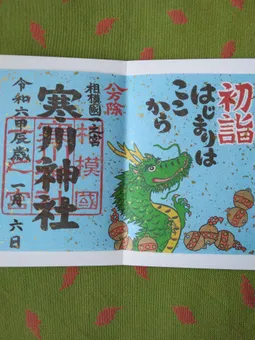 初詣
はじまりは
ここ
から
八方除
相模國一之宮
寒川神社
相模國
令和六甲辰歳 一月 六日